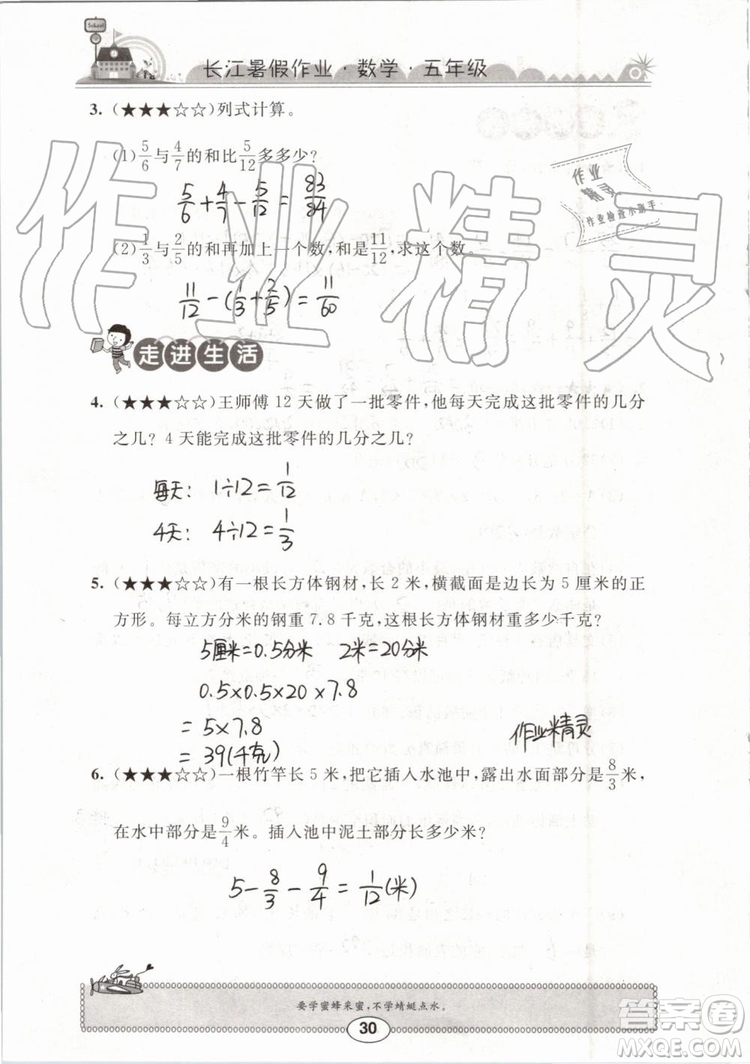 School
长江暑假作业·数学·五年级
3. (★★★☆☆)列式计算。
(1) 5/6 与 4/7 的和比 5/12 多多少?
5/6 + 4/7 - 5/12 = 83/84
(2) 1/3 与 2/5 的和再加上一个数,和是 11/12,求这个数。
11/12 - (1/3 + 2/5) = 11/60
走进生活
4. (★★★☆☆)王师傅 12 天做了一批零件,他每天完成这批零件的几分
之几? 4 天能完成这批零件的几分之几?
每天: 1÷12 = 1/12
4天: 4÷12 = 1/3
5. (★★★☆☆)有一根长方体钢材,长 2 米,横截面是边长为 5 厘米的正
方形。每立方分米的钢重 7.8 千克,这根长方体钢材重多少千克?
5厘米=0.5分米 2米=20分米
0.5×0.5×20×7.8
=5×7.8
=39(千克)
作业精灵
6. (★★★☆☆)一根竹竿长 5 米,把它插入水池中,露出水面部分是 8/3 米,
在水中部分是 9/4 米。插入池中泥土部分长多少米?
5 - 8/3 - 9/4 = 1/12 (米)
要学蜜蜂采蜜,不学蜻蜓点水。
30
作业精灵
作业
精灵
作业检查小帮手
答案圈
MXQE.COM